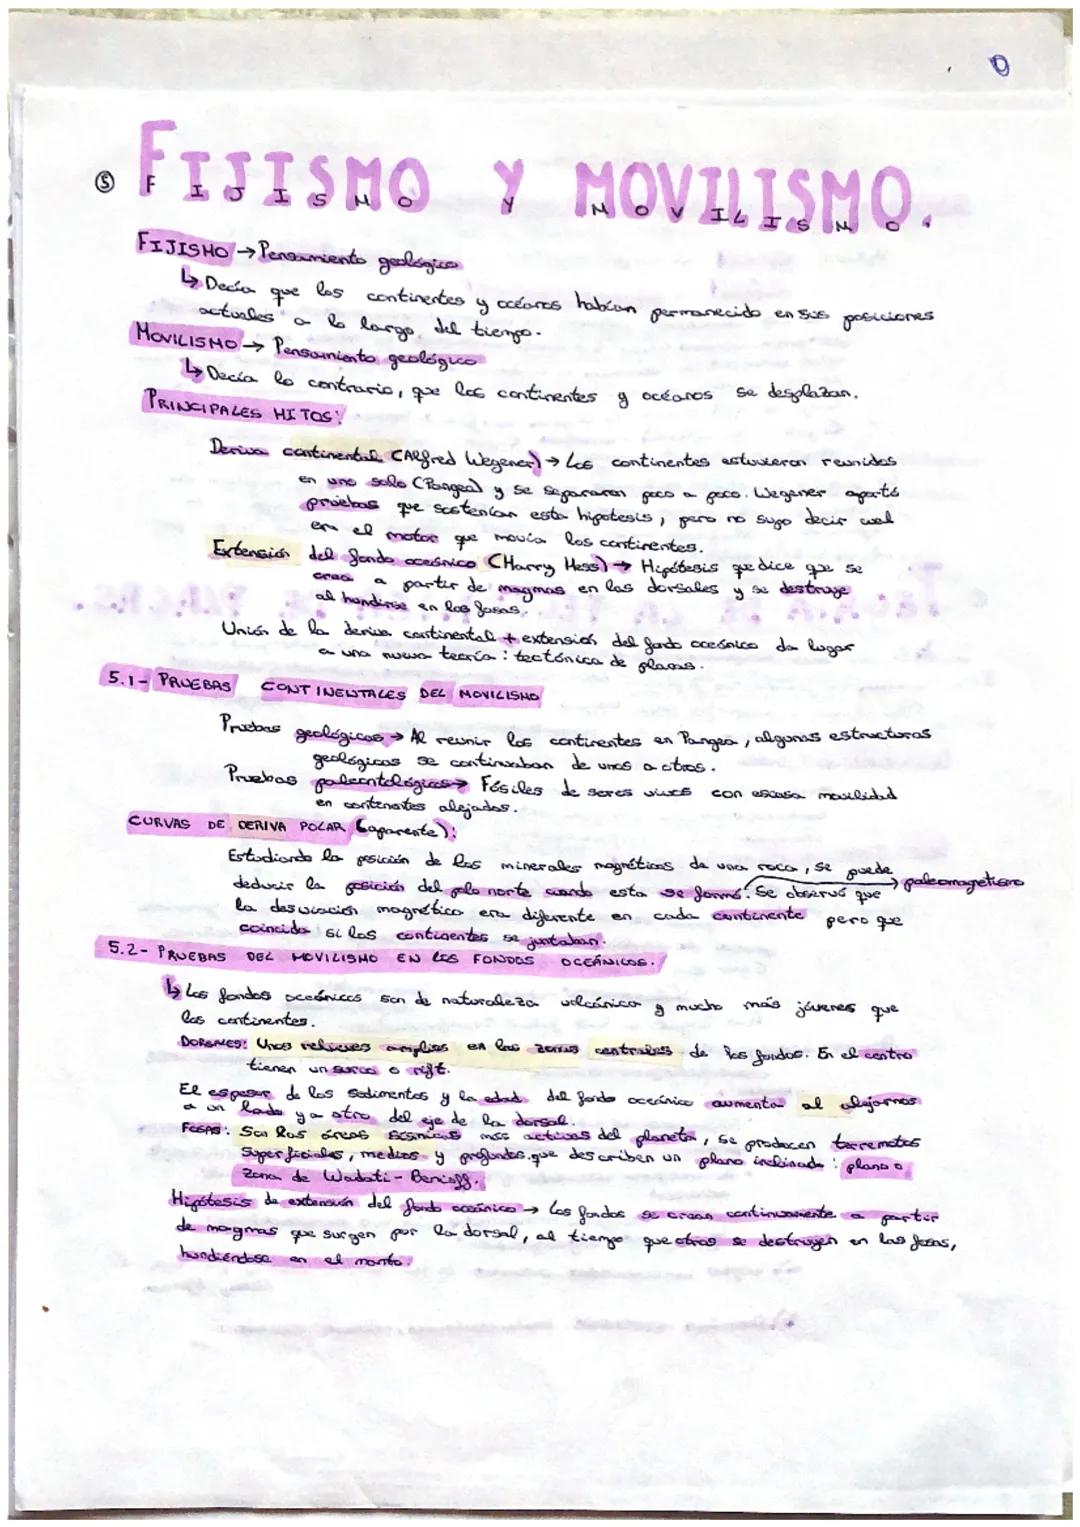 ⑤ FIJISMO Y MOVILISMO.
FIJISMO → Pensamiento geológico
↳ Decía que los continentes y océanos habían permanecido en sus posiciones
actuales a lo largo del tiempo.
MOVILISMO → Pensamiento geológico
↳ Decía lo contrario, que los continentes y océanos se desplazan.
PRINCIPALES HITOS:
Deriva continental (Alfred Wegener) → Los continentes estuvieron reunidos
en uno solo (Pangea) y se separaron poco a poco. Wegener aportó
pruebas que sostenían esta hipótesis, pero no supo decir cual
era el motor que movía los continentes.
Extensión del fondo oceánico (Harry Hess) → Hipótesis que dice que se
crea a partir de magmas en las dorsales y se destruye
al hundirse en las fosas.
Unión de la deriva continental + extensión del fondo oceánico da lugar
a una nueva teoría: tectónica de placas.
5.1- PRUEBAS CONTINENTALES DEL MOVILISMO
Pruebas geológicas → Al reunir los continentes en Pangea, algunas estructuras
geológicas se continuaban de unos a otros.
Pruebas paleontológicas → Fósiles de seres vivos con escasa movilidad
en continentes alejados.
CURVAS DE DERIVA POLAR (aparente):
Estudiando la posición de los minerales magnéticos de una roca, se puede
deducir la posición del polo norte cuando esta se formó. Se observó que → paleomagnetismo
la desviación magnético era diferente en cada continente pero que
coincide si los continentes se juntaban.
5.2- PRUEBAS DEL MOVILISMO EN LOS FONDOS OCEÁNICOS.
↳ Los fondos oceánicos son de naturaleza volcánica y mucho más jóvenes que
los continentes.
DORSALES: Unos relieves amplios en las zonas centrales de los fondos. En el centro
tienen un surco o rift.
El espesor de los sedimentos y la edad del fondo oceánico aumenta al alejarnos
a un lado y a otro del eje de la dorsal.
FOSAS: Son las áreas sísmicas más activas del planeta, se producen terremotos
superficiales, medios y profundos que describen un plano inclinado: plano o
zona de Wadati-Benioff.
Hipótesis de extensión del fondo oceánico → Los fondos se crean continuamente a partir
de magmas que surgen por la dorsal, al tiempo que otros se destruyen en las fosas,
hundiéndose en el manto.